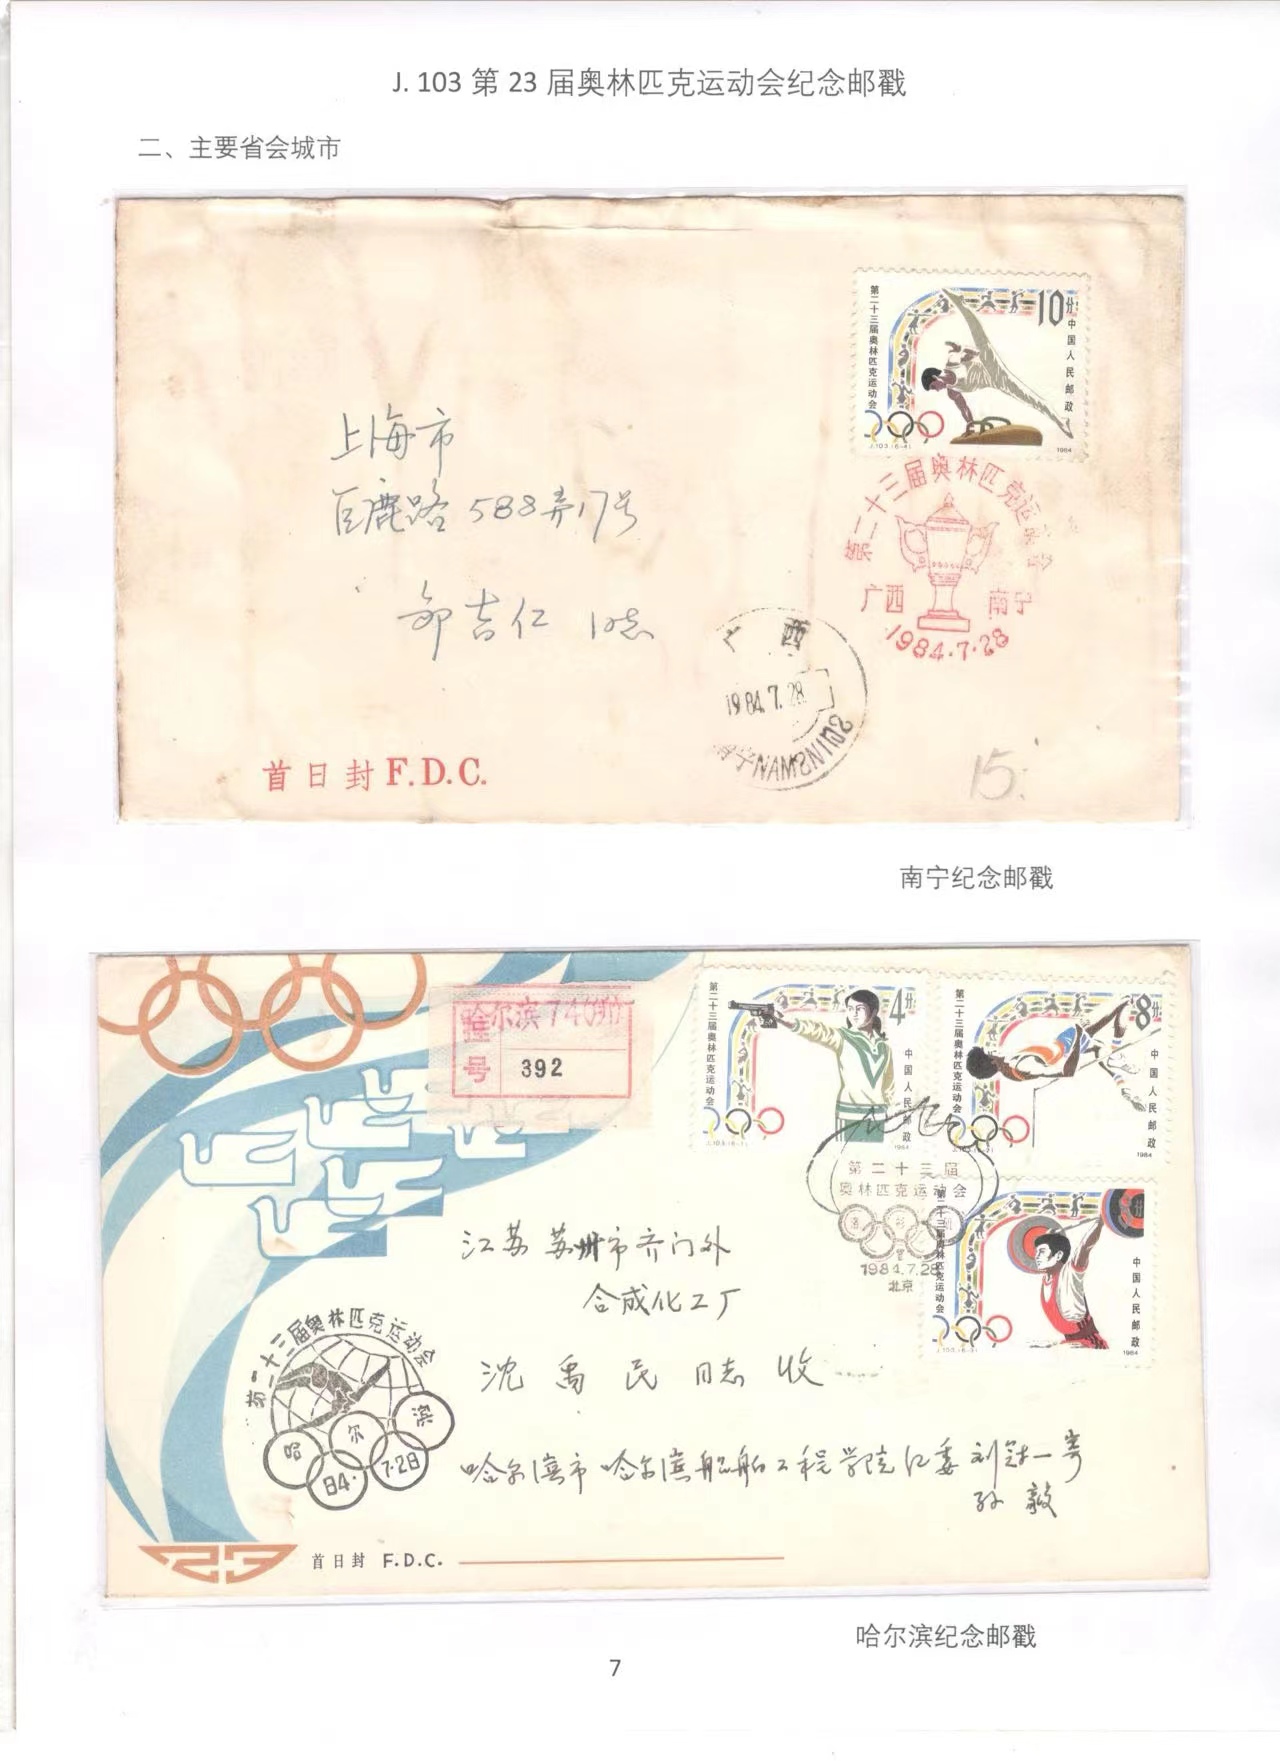 J. 103 第 23 届奥林匹克运动会纪念邮戳
二、主要省会城市
第二十三届奥林匹克运动会
10分
中国人民邮政
J.103.(6-4)
1984
上海市
巨鹿路588弄17号
邹吉仁 同志
第二十三届奥林匹克运动会
广西 南宁
1984·7·28
广 西
1984.7.28
首日封 F.D.C.
15
南宁纪念邮戳
哈尔滨
号
392
第二十三届奥林匹克运动会
4分
中国人民邮政
J.103.(6-1)
1984
第二十三届奥林匹克运动会
8分
中国人民邮政
J.103.(6-2)
1984
第二十三届
奥林匹克运动会
1984.7.28
北京
第二十三届奥林匹克运动会
分
中国人民邮政
J.103.(6-3)
1984
江苏苏州市齐门外
合成化工厂
沈禹民 同志 收
第二十三届奥林匹克运动会
哈 尔 滨
84·
哈尔滨市哈尔滨船舶工程学院
首日封 F.D.C.
哈尔滨纪念邮戳
7